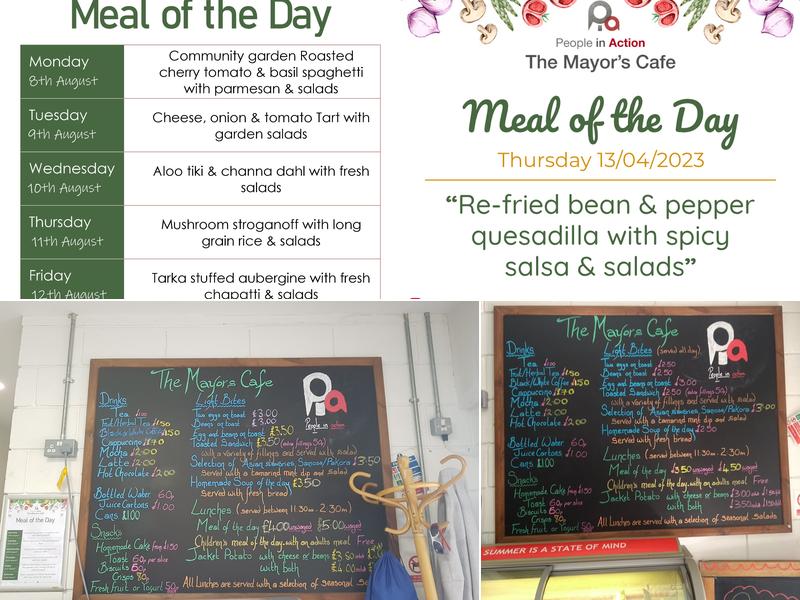 Meal of the Day
Monday
8th August
Community garden Roasted
cherry tomato & basil spaghetti
with parmesan & salads
Tuesday
9th August
Cheese, onion & tomato Tart with
garden salads
Wednesday
10th August
Aloo tiki & channa dahl with fresh
salads
Thursday
11th August
Mushroom stroganoff with long
grain rice & salads
Friday
12th August
Tarka stuffed aubergine with fresh
chapatti & salads
Pia
People in Action
The Mayor's Cafe
Meal of the Day
Thursday 13/04/2023
“Re-fried bean & pepper
quesadilla with spicy
salsa & salads”
The Mayors Cafe
Pia
People in action
Drinks
Tea £1.00
Fruit/Herbal Tea £1.50
Black/White Coffee £1.50
Cappuccino £1.70
Mocha £2.00
Latte £2.00
Hot Chocolate £2.00
Bottled Water 60p
Juice Cartons £1.00
Cans £1.00
Snacks
Homemade Cake from £1.50
Toast 60p per slice
Biscuits 60p
Crisps 80p
Fresh Fruit or Yogurt 50p
Light Bites
Two eggs on toast £3.00
Beans on toast £3.00
Egg and beans on toast £3.50
Toasted Sandwich £3.50 (extra fillings 50p)
(with a variety of fillings and served with salad)
Selection of Asian Savouries, Samosa/Pakora £3.50
Served with a tamarind mint dip and salad
Homemade Soup of the day £3.50
(Served with fresh bread)
Lunches (served 11.30am - 2.30pm)
Meal of the day £4.00 unwaged £5.00 waged
Children's meal of the day with an adults meal Free
Jacket Potato with cheese or beans
with both
All Lunches are served with a selection of Seasonal
Meal of the Day
The Mayors Cafe
Pia
People in action
Drinks
Tea £1.00
Fruit/Herbal Tea £1.50
Black/White Coffee £1.50
Cappuccino £1.70
Mocha £2.00
Latte £2.00
Hot Chocolate £2.00
Bottled Water 60p
Juice Cartons £1.00
Cans £1.00
Snacks
Homemade Cake from £1.50
Toast 60p per slice
Biscuits 60p
Crisps 80p
Fresh Fruit or Yogurt 50p
Light Bites (served all day)
Two eggs on toast £2.50
Beans on toast £2.50
Egg and beans on toast £3.00
Toasted Sandwich £2.50 (extra fillings 50p)
(with a variety of fillings and served with salad)
Selection of Asian Savouries, Samosa/Pakora £3.00
Served with a tamarind mint dip and salad
Homemade Soup of the day £2.50
(Served with fresh bread)
Lunches (served 11.30am - 2.30pm)
Meal of the day £3.50 unwaged £4.50 waged
Children's meal of the day with an adults meal Free
Jacket Potato with cheese or beans £3.00
with both £3.50
All Lunches are served with a selection of Seasonal Salads
SUMMER IS A STATE OF MIND